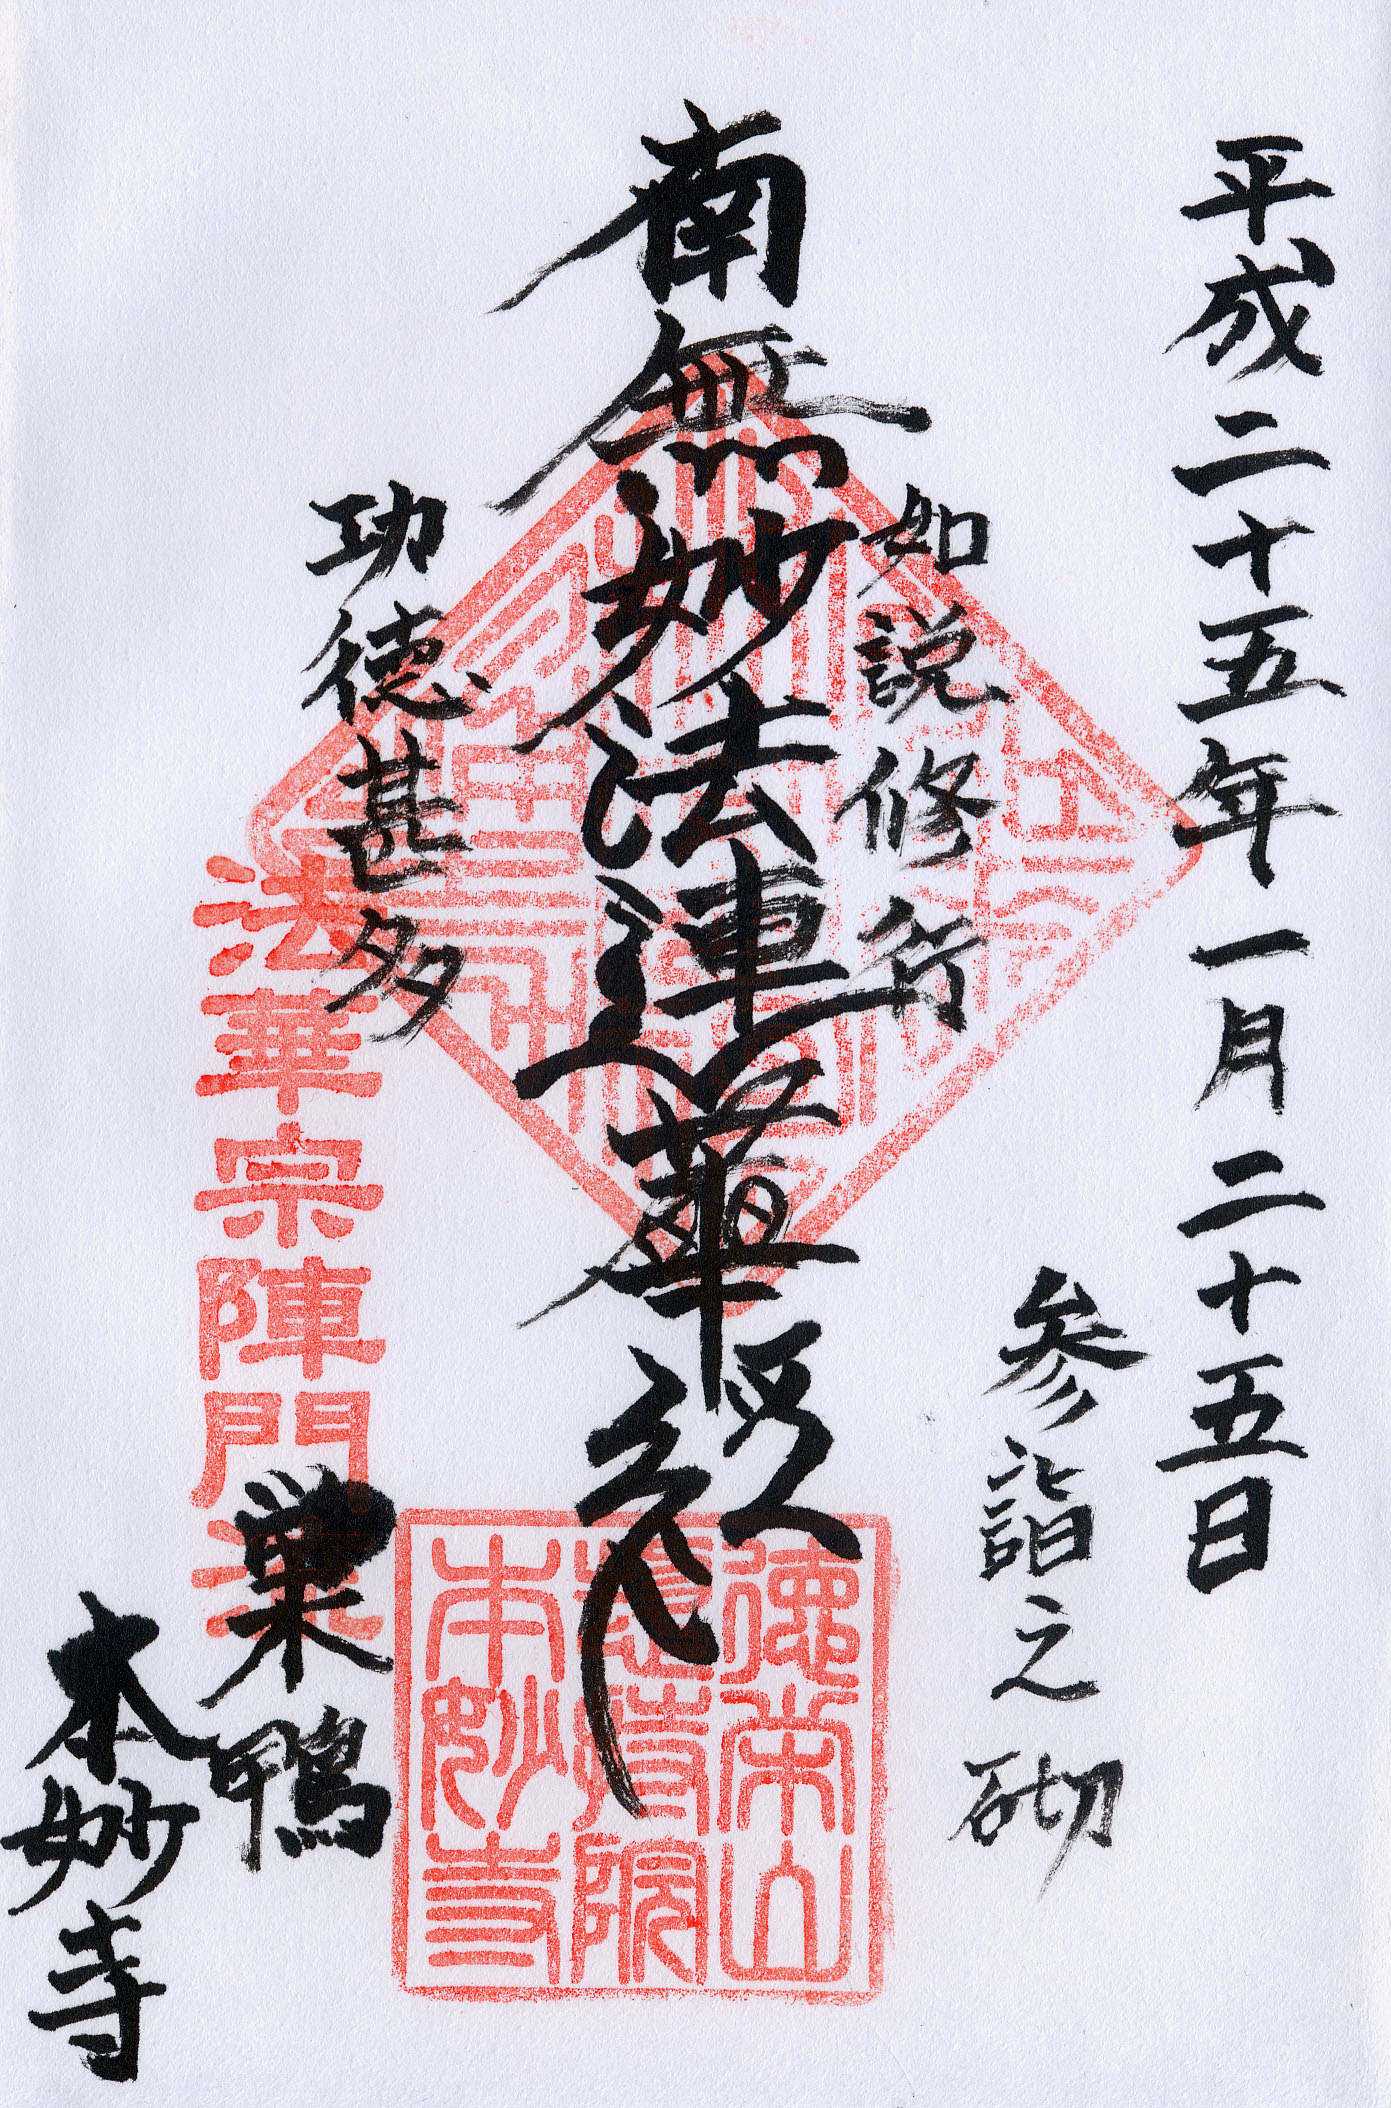 平成二十五年一月二十五日
参詣之砌
如説修行
南無妙法蓮華経
功徳甚多
巣鴨
本妙寺
法華宗陣門流
徳栄山
惣持院
本妙寺